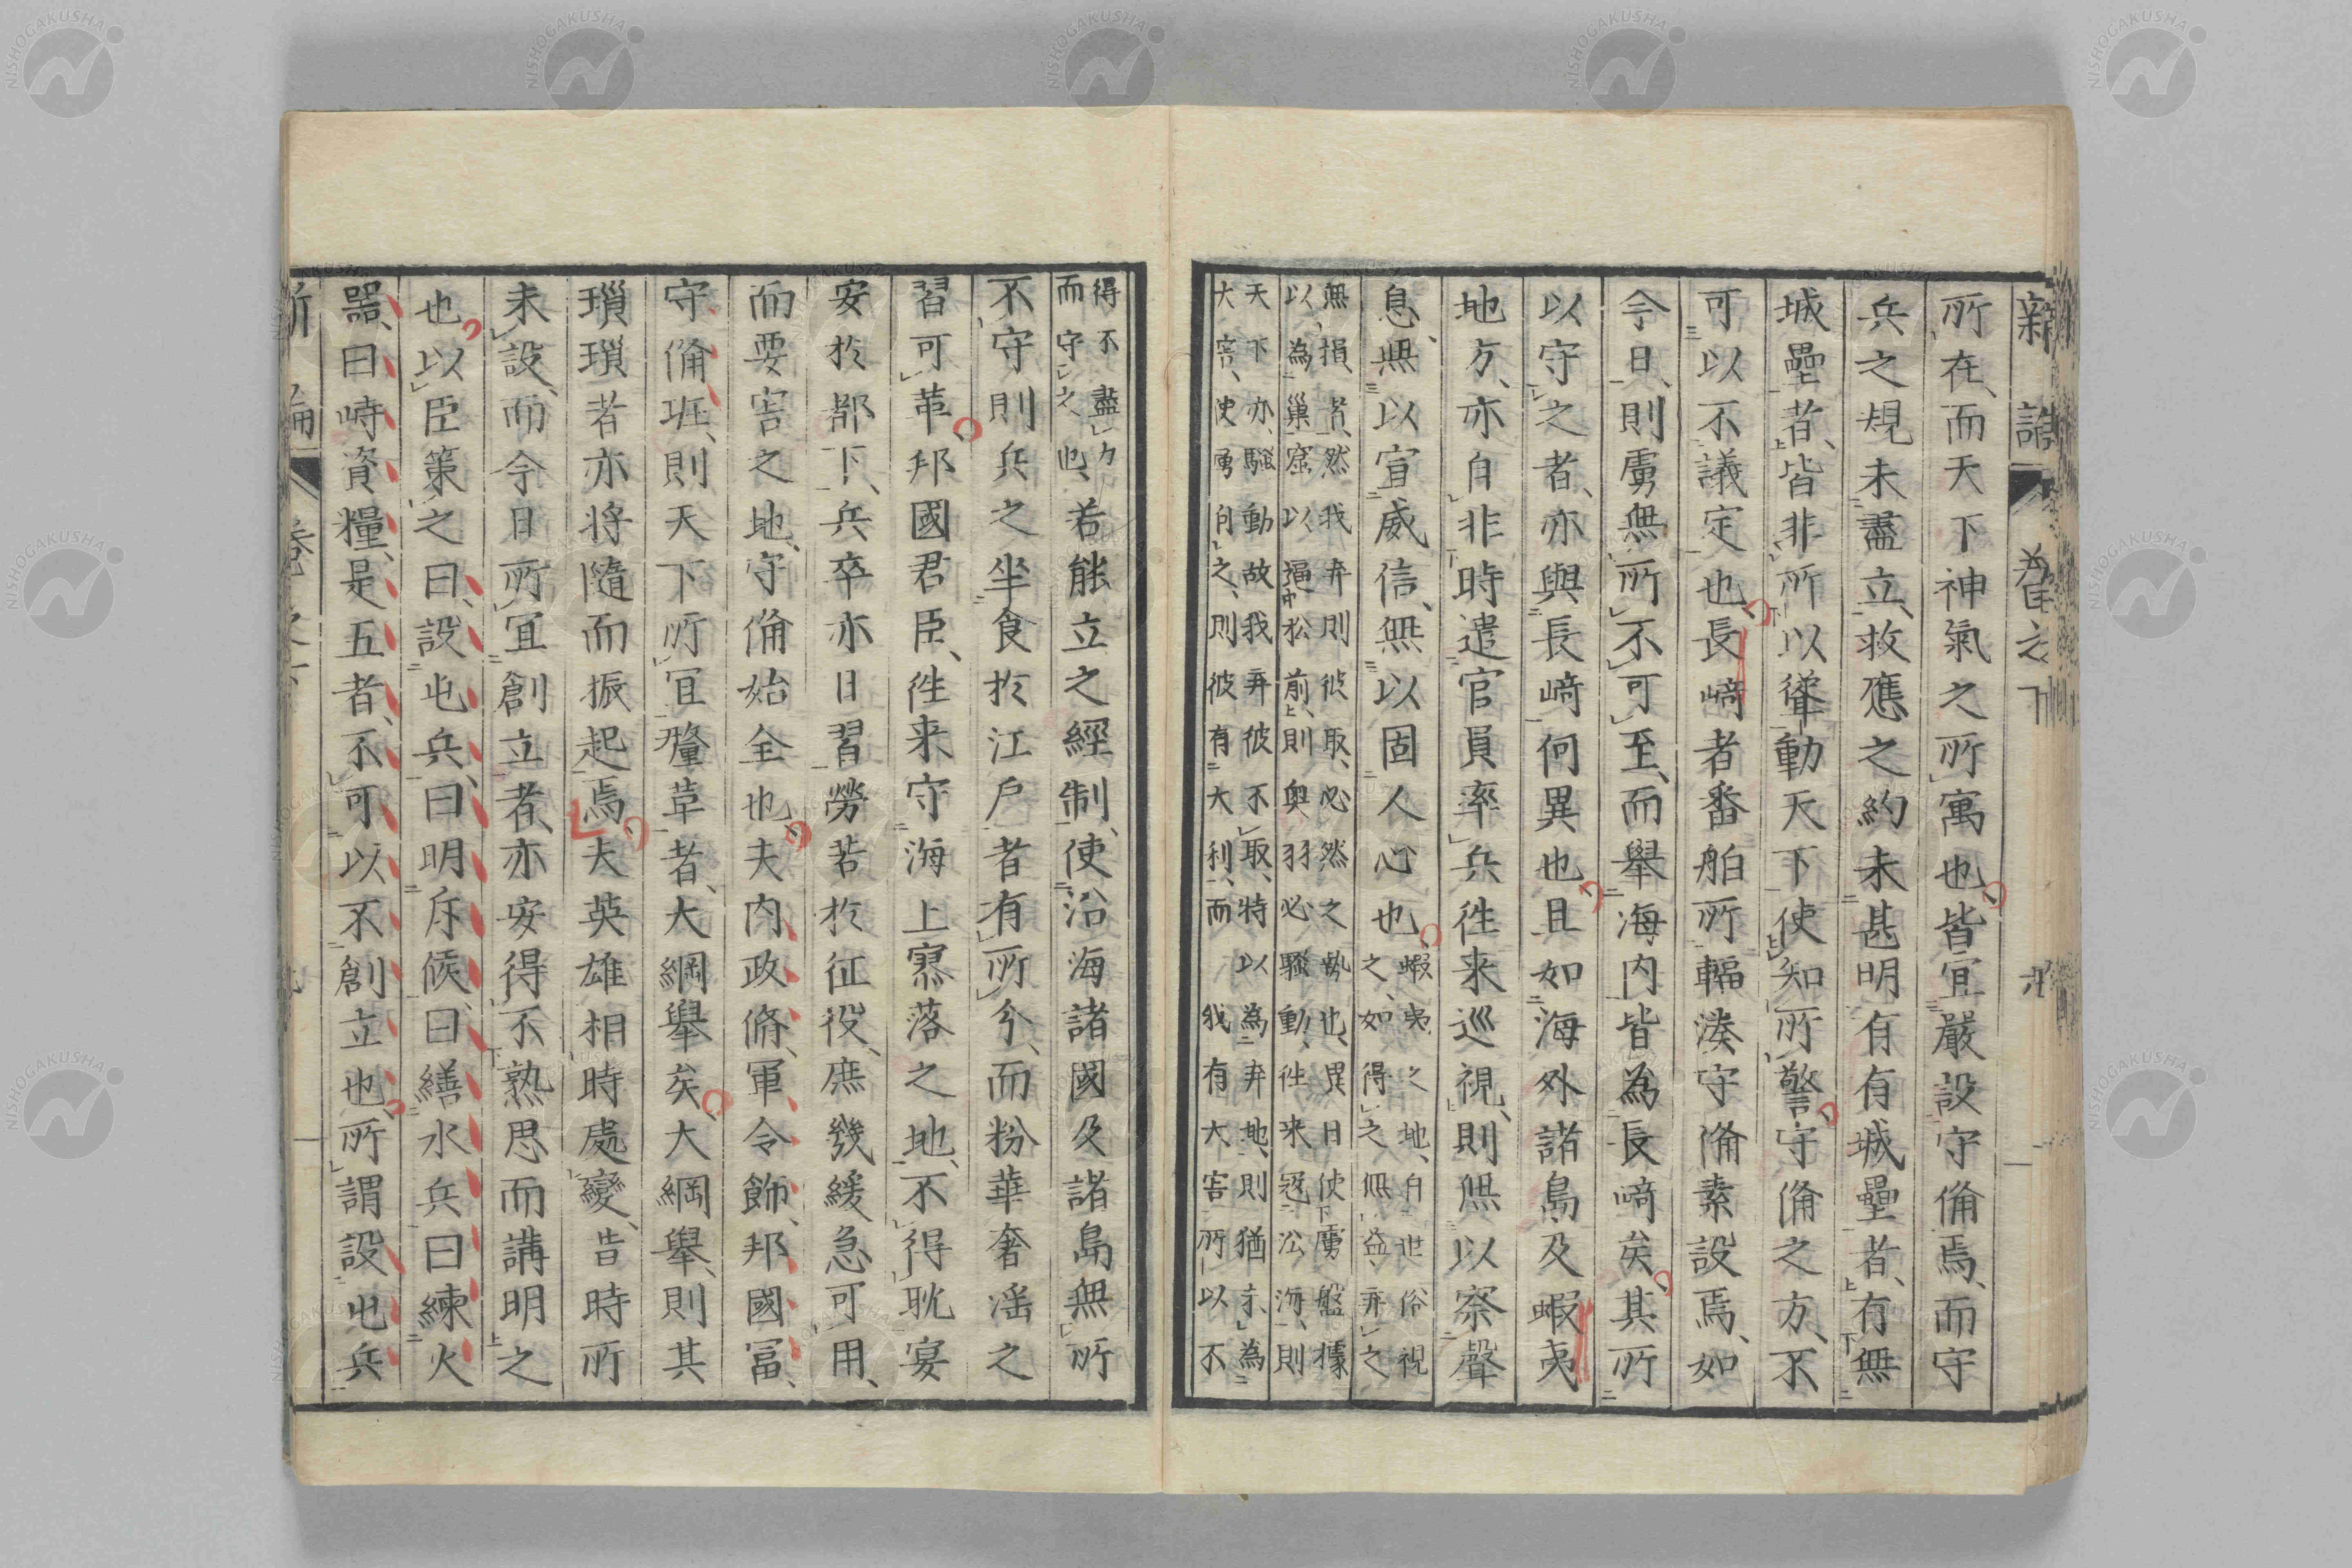 新論 卷之下
所在、而天下神氣之所寓也、皆宜嚴設守備焉、而守
兵之規未盡立、救應之約未甚明、有有城壘者、有無
城壘者、皆非所以聳動天下使知所警、守備之方、不
可以不議定也、長﨑者番舶所輻湊守備素設焉、如
今日、則虜無所不可至、而舉海内皆為長﨑矣、其所
以守之者、亦與長﨑何異也、且如海外諸島及蝦夷
地方、亦自非時遣官員率兵徃来巡視、則無以察聲
息、無以宣威信、無以固人心也、
蝦夷之地、自世俗視
之、如得之無益、弃之
無損者、然我弃則彼取、必然之勢也、異日使虜盤據
以為巢窟、以逼松前、則奥羽必騷動、徃来冦㳂海、則
天下亦騷動、故我弃彼不取、特以為弃地、則猶亦為
大害、使虜向之、則彼有大利、而我有大害、所以不
得不盡力
而守之也、
若能立之經制、使沿海諸國及諸島無所
不守則兵之坐食於江戸者有所分、而粉華奢滛之
習可革、邦國君臣、徃来守海上寡落之地、不得耽宴
安於都下、兵卒亦日習勞苦於征役、庶幾緩急可用、
而要害之地、守備始全也、夫内政脩、軍令飭、邦國冨、
守備班、則天下所宜釐革者、大綱舉矣、大綱舉、則其
瑣瑣者亦将隨而振起焉、夫英雄相時處變、昔時所
未設、而今日所宜創立者、亦安得不熟思而講明之
也、以臣策之曰、設屯兵、曰明斥候、曰繕水兵、曰練火
器、曰峙資糧、是五者、不可以不創立也、所謂設屯兵